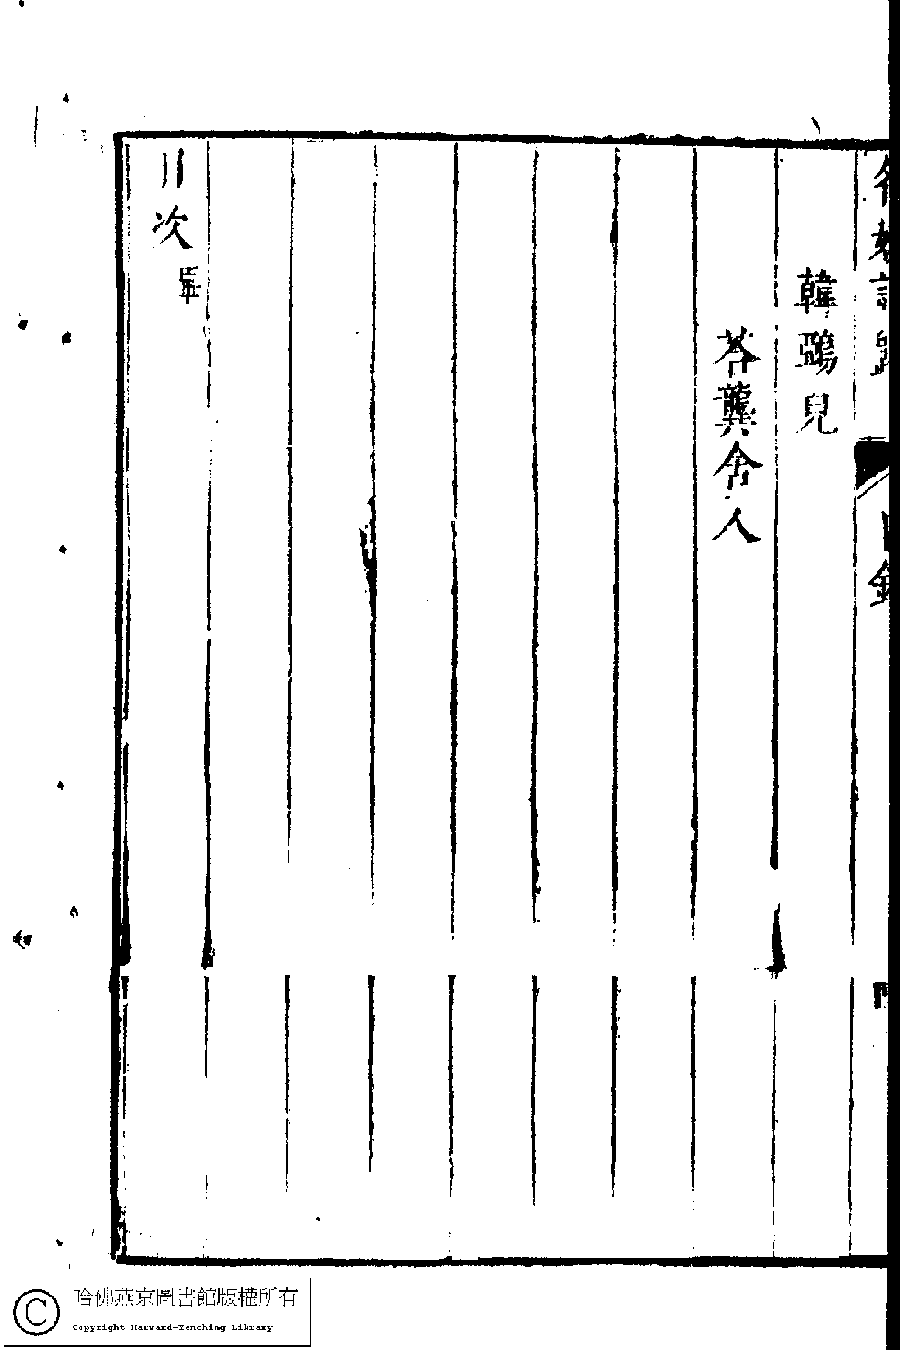 名媛詩歸 目錄
韓鵎兒
答龔舍人
目次畢
哈佛燕京圖書館版權所有
Copyright Harvard-Yenching Library